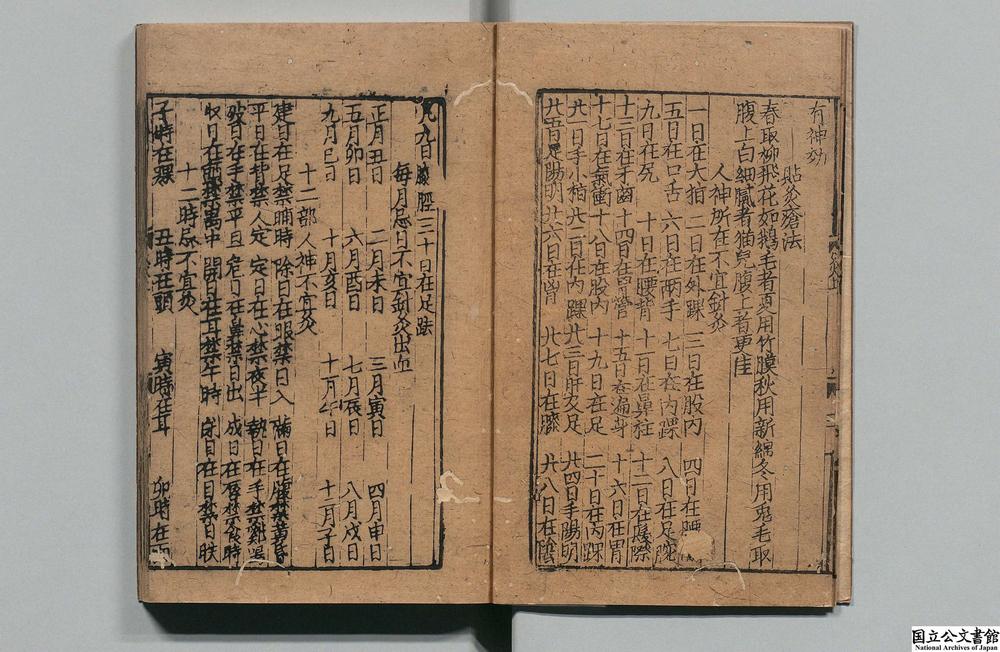 有神効
貼灸瘡法
春取柳飛花如鵝毛者夏用竹膜秋用新綿冬用兎毛取
腹上白細膩者猫兒腹上者更佳
人神所在不宜針灸
一日在大指 二日在外踝 三日在股内 四日在腰
五日在口舌 六日在両手 七日在内踝 八日在足腕
九日在尻 十日在腰背 十一日在鼻柱 十二日在髮際
十三日在牙齒 十四日在胃管 十五日在遍身 十六日在胃
十七日在氣衝 十八日在股内 十九日在足 二十日在内踝
廿一日手小指 廿二日在外踝 廿三日肝及足 廿四日手陽明
廿五日足陽明 廿六日在胷 廿七日在膝 廿八日在陰
廿九日膝脛三十日在足趺
每月忌日不宜針灸出血
正月丑日 二月未日 三月寅日 四月申日
五月卯日 六月酉日 七月辰日 八月戌日
九月巳日 十月亥日 十一月午日 十二月子日
十二部人神不宜灸
建日在足禁晡時 除日在眼禁日入 滿日在腹禁黃昏
平日在背禁人定 定日在心禁夜半 執日在手禁
破日在 禁平旦 危日在鼻禁日出 成日在唇禁食時
收日在 禁禺中 開日在耳禁午時 閉日在目禁日昳
十二時忌不宜灸
子時在踝 丑時在頭 寅時在耳 卯時在
国立公文書館
National Archives of Japan